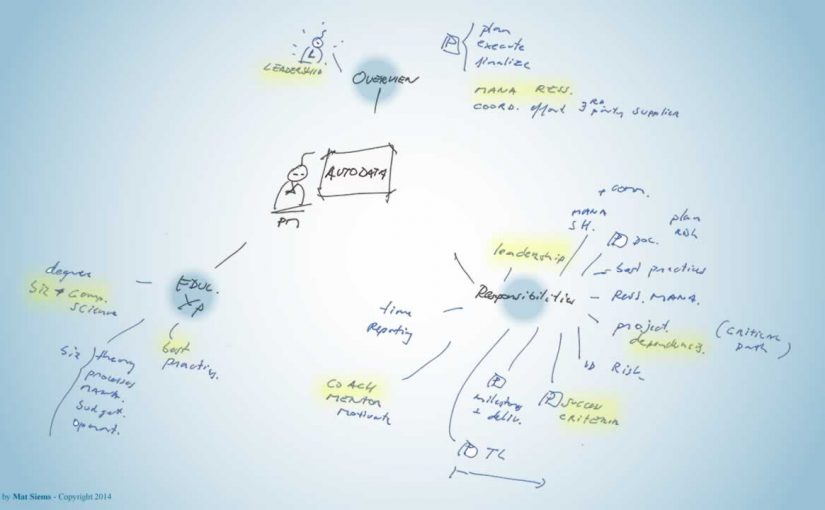 LEADERSHIP
OVERVIEW
P
plan
execute
finalize
MANA RESS.
COORD. effort 3RD party supplier
AUTODATA
PM
+ comm.
MANA
SH.
P DOC.
plan
RISK
leadership
best practices
Responsibilities
RESS. MANA.
project
dependencies.
(CRITICAL
path)
RISK
time
Reporting
COACH
MENTOR
Motivate
P
milestones
+ deliv.
P SUCCESS
CRITERIA
P TL
EDUC.
XP
degree
Computer
SCIENCE
best
practices.
theory
processes
MANA.
Budget.
Operat.
by Mat Siems - Copyright 2014